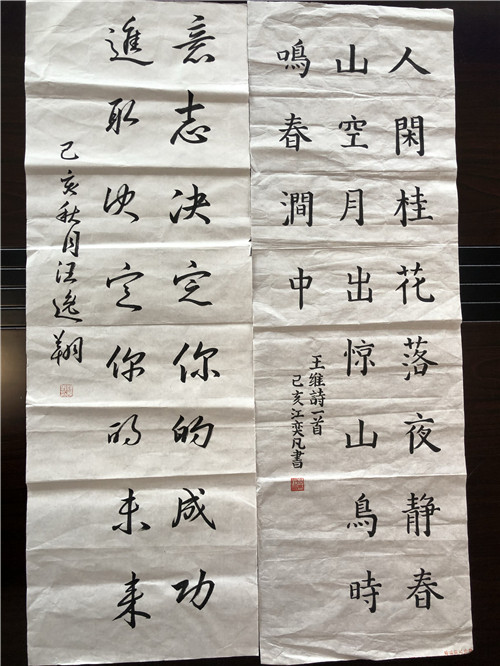 人閑桂花落夜静春
山空月出惊山鳥時
鳴春澗中
王維詩一首
己亥江奕凡書
意志决定你的成功
進取决定你的未来
己亥秋月汪逸翔